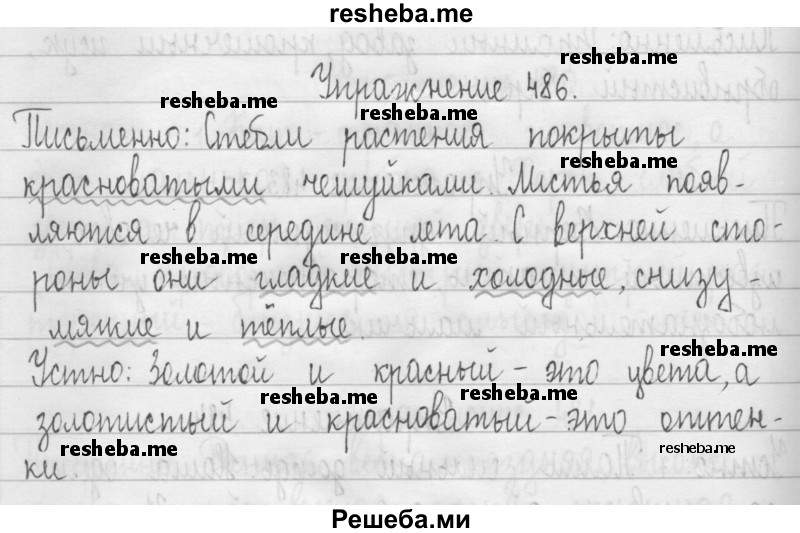 resheba.me
Упражнение 486.
resheba.me
resheba.me
resheba.me
Письменно: Стебли растения покрыты
resheba.me
красноватыми чешуйками. Листья появ-
ляются в середине лета. С верхней сто-
resheba.me
resheba.me
роны они гладкие и холодные, снизу -
мягкие и тёплые.
resheba.me
Устно: Золотой и красный - это цвета, а
resheba.me
resheba.me
золотистый и красноватый - это оттен-
resheba.me
resheba.me
ки.
Решеба.ми